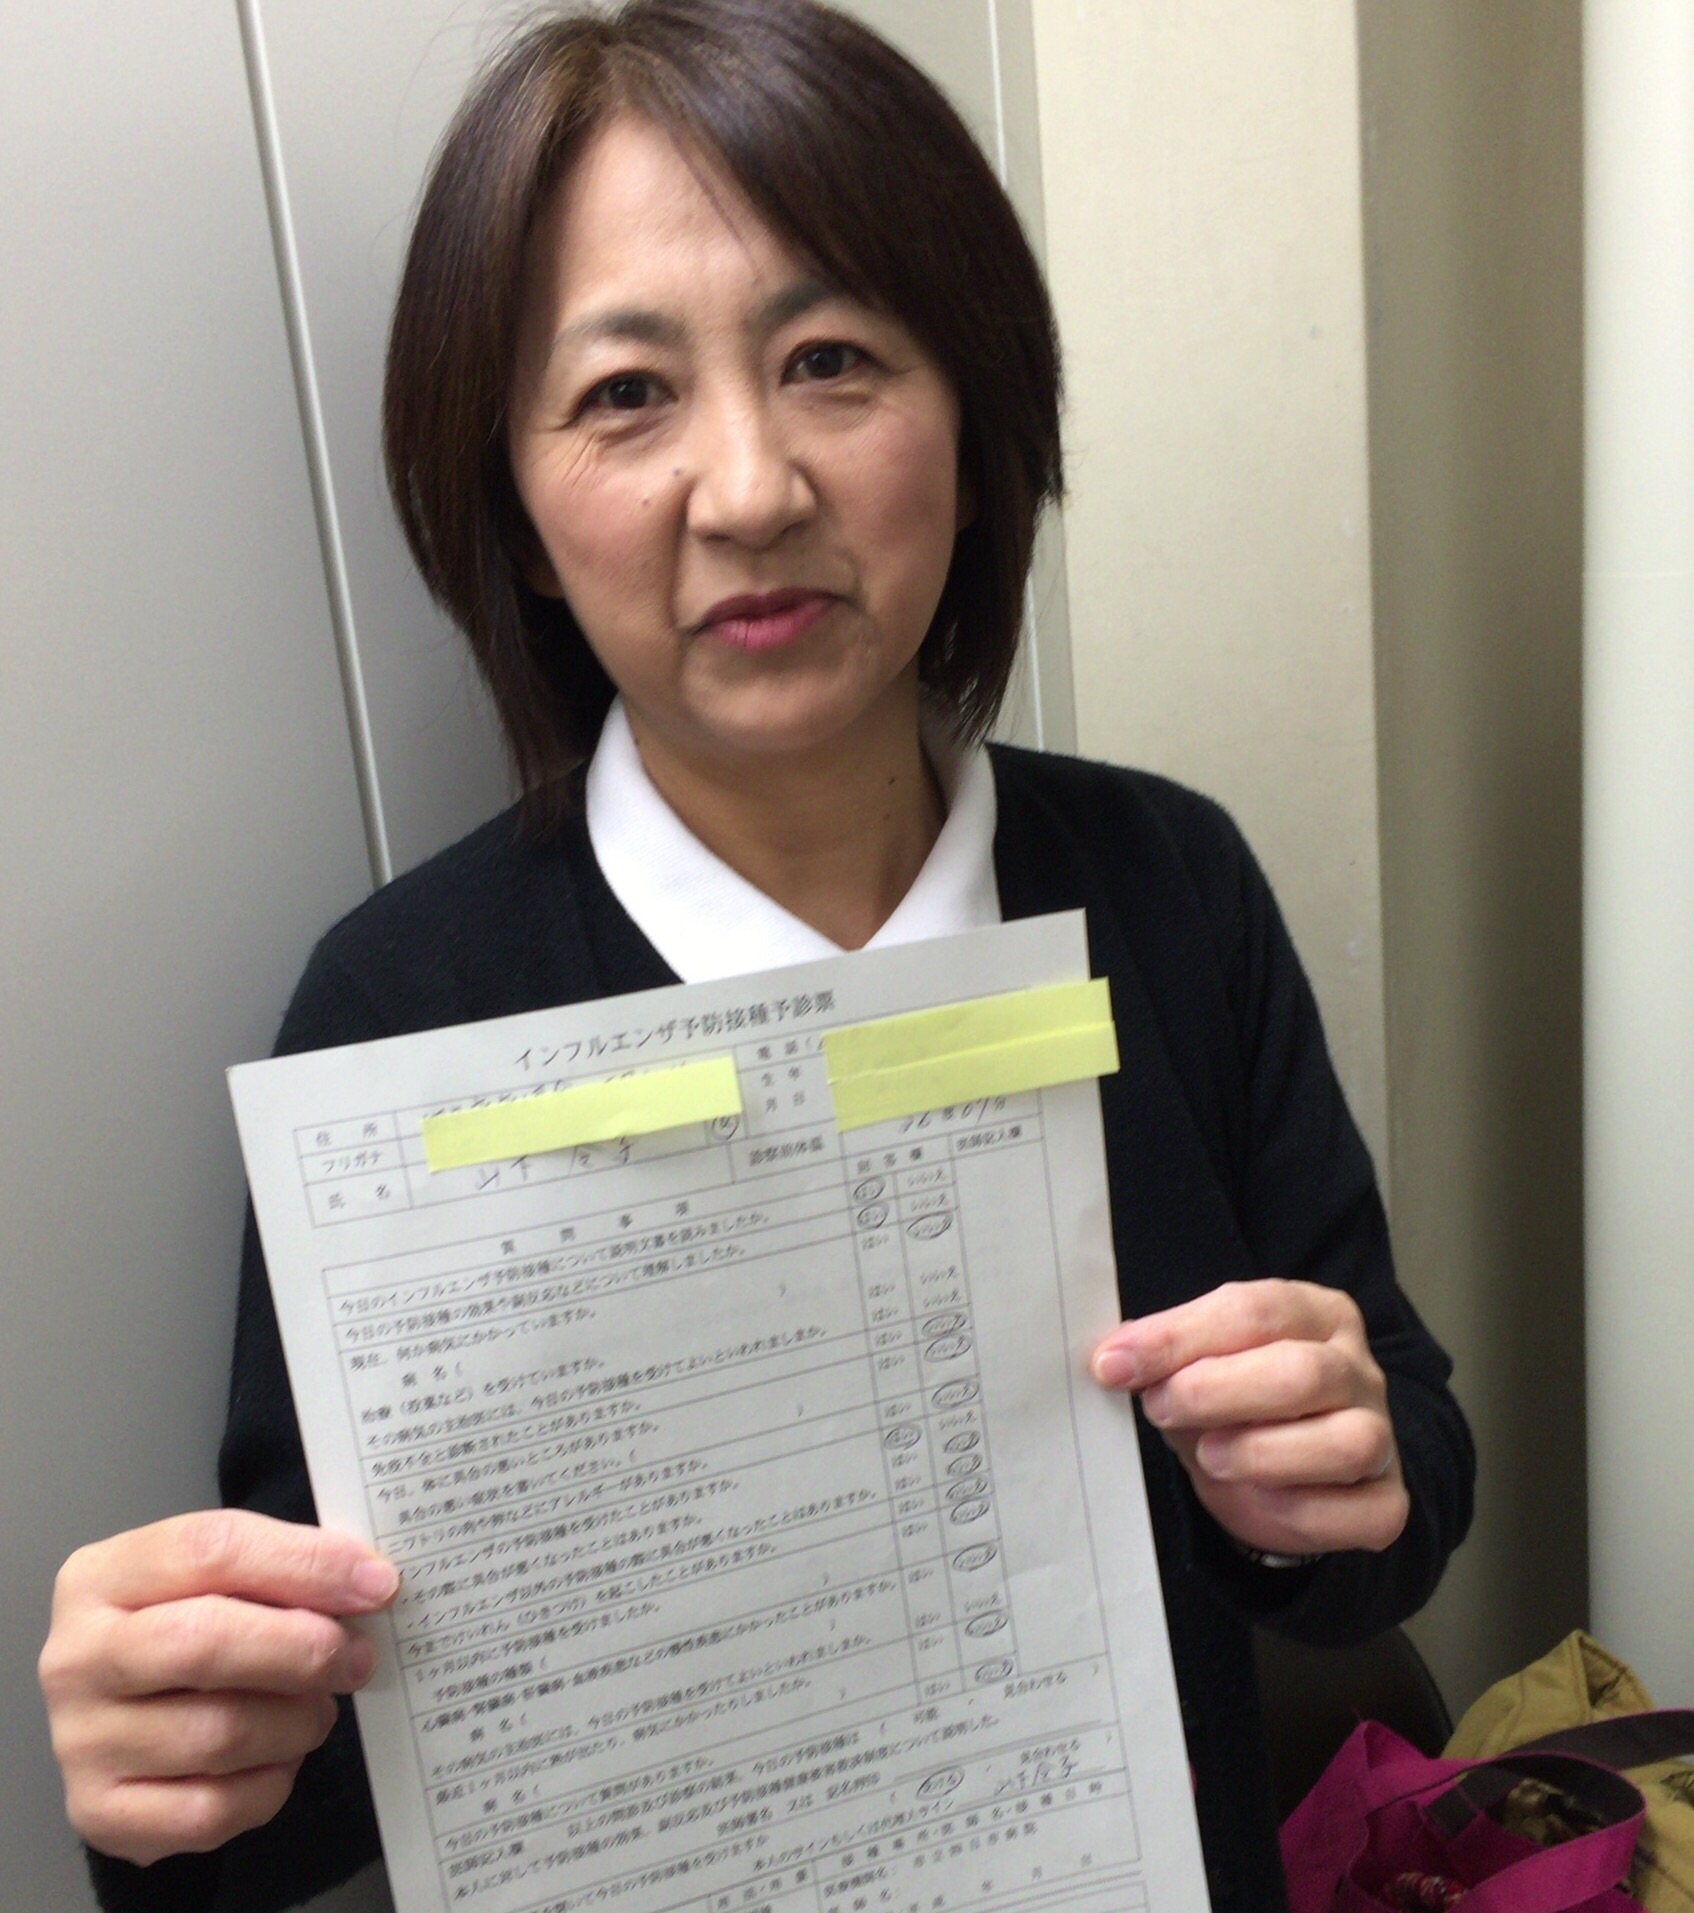 インフルエンザ予防接種予診票
住所
電話(
フリガナ
生年
月日
氏名
診察前体温
質問事項
回答欄
医師記入欄
今日のインフルエンザ予防接種について説明文書を読みましたか。 はい いいえ
今日の予防接種の効果や副反応などについて理解しましたか。 はい いいえ
現在、何か病気にかかっていますか。 はい いいえ
病名( )
治療(投薬など)を受けていますか。 はい いいえ
その病気の主治医には、今日の予防接種を受けてよいといわれましたか。 はい いいえ
免疫不全と診断されたことがありますか。 はい いいえ
今日、体に具合の悪いところがありますか。 はい いいえ
具合の悪い症状を書いてください。( )
ニワトリの肉や卵などにアレルギーがありますか。 はい いいえ
インフルエンザの予防接種を受けたことがありますか。 はい いいえ
・その際に具合が悪くなったことはありますか。 はい いいえ
・インフルエンザ以外の予防接種の際に具合が悪くなったことはありますか。 はい いいえ
今までけいれん(ひきつけ)を起こしたことがありますか。 はい いいえ
1ヶ月以内に予防接種を受けましたか。 はい いいえ
予防接種の種類( )
心臓病・腎臓病・血液疾患などの慢性疾患にかかったことがありますか。 はい いいえ
病名( )
その病気の主治医には、今日の予防接種を受けてよいといわれましたか。 はい いいえ
最近1ヶ月以内に熱が出たり、病気にかかったりしましたか。 はい いいえ
病名( )
今日の予防接種について質問がありますか。 はい いいえ
医師記入欄 以上の問診及び診察の結果、今日の予防接種は ( 可能 ・ 見合わせる )
本人に対して予防接種の効果、副反応及び予防接種健康被害救済制度について説明した。
医師署名 又は 記名押印
今日の予防接種を受けますか ( 受ける ・ 見合わせる )
本人のサインもしくは代理人サイン
接種場所・医師名・接種日時